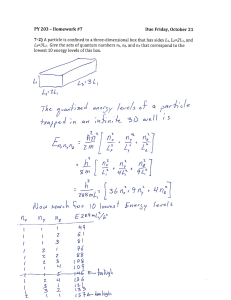 PY 203 – Homework #7 Due Friday, October 21
7-2) A particle is confined to a three-dimensional box that has sides L₁, L₂=2L₁, and
L₃=3L₁. Give the sets of quantum numbers n₁, n₂, and n₃ that correspond to the
lowest 10 energy levels of this box.
L₁
L₃=3L₁
L₂=2L₁
The quantized energy levels of a particle
trapped in an infinite 3D well is
E n₁n₂n₃ = ħ²π²/2m [n₁²/L₁² + n₂²/L₂² + n₃²/L₃²]
= h²/8m [n₁²/L₁² + n₂²/4L₁² + n₃²/9L₁²]
= h²/288mL₁² [36n₁² + 9n₂² + 4n₃²]
Now search for 10 lowest Energy levels
n₁ n₂ n₃
1 1 1 49
1 1 2 61
1 1 3 81
1 2 1
1 2 2 88
1 2 3 108
1 1 4 109
too high
1 2 4 136
1 3 1
1 3 2 133
too high